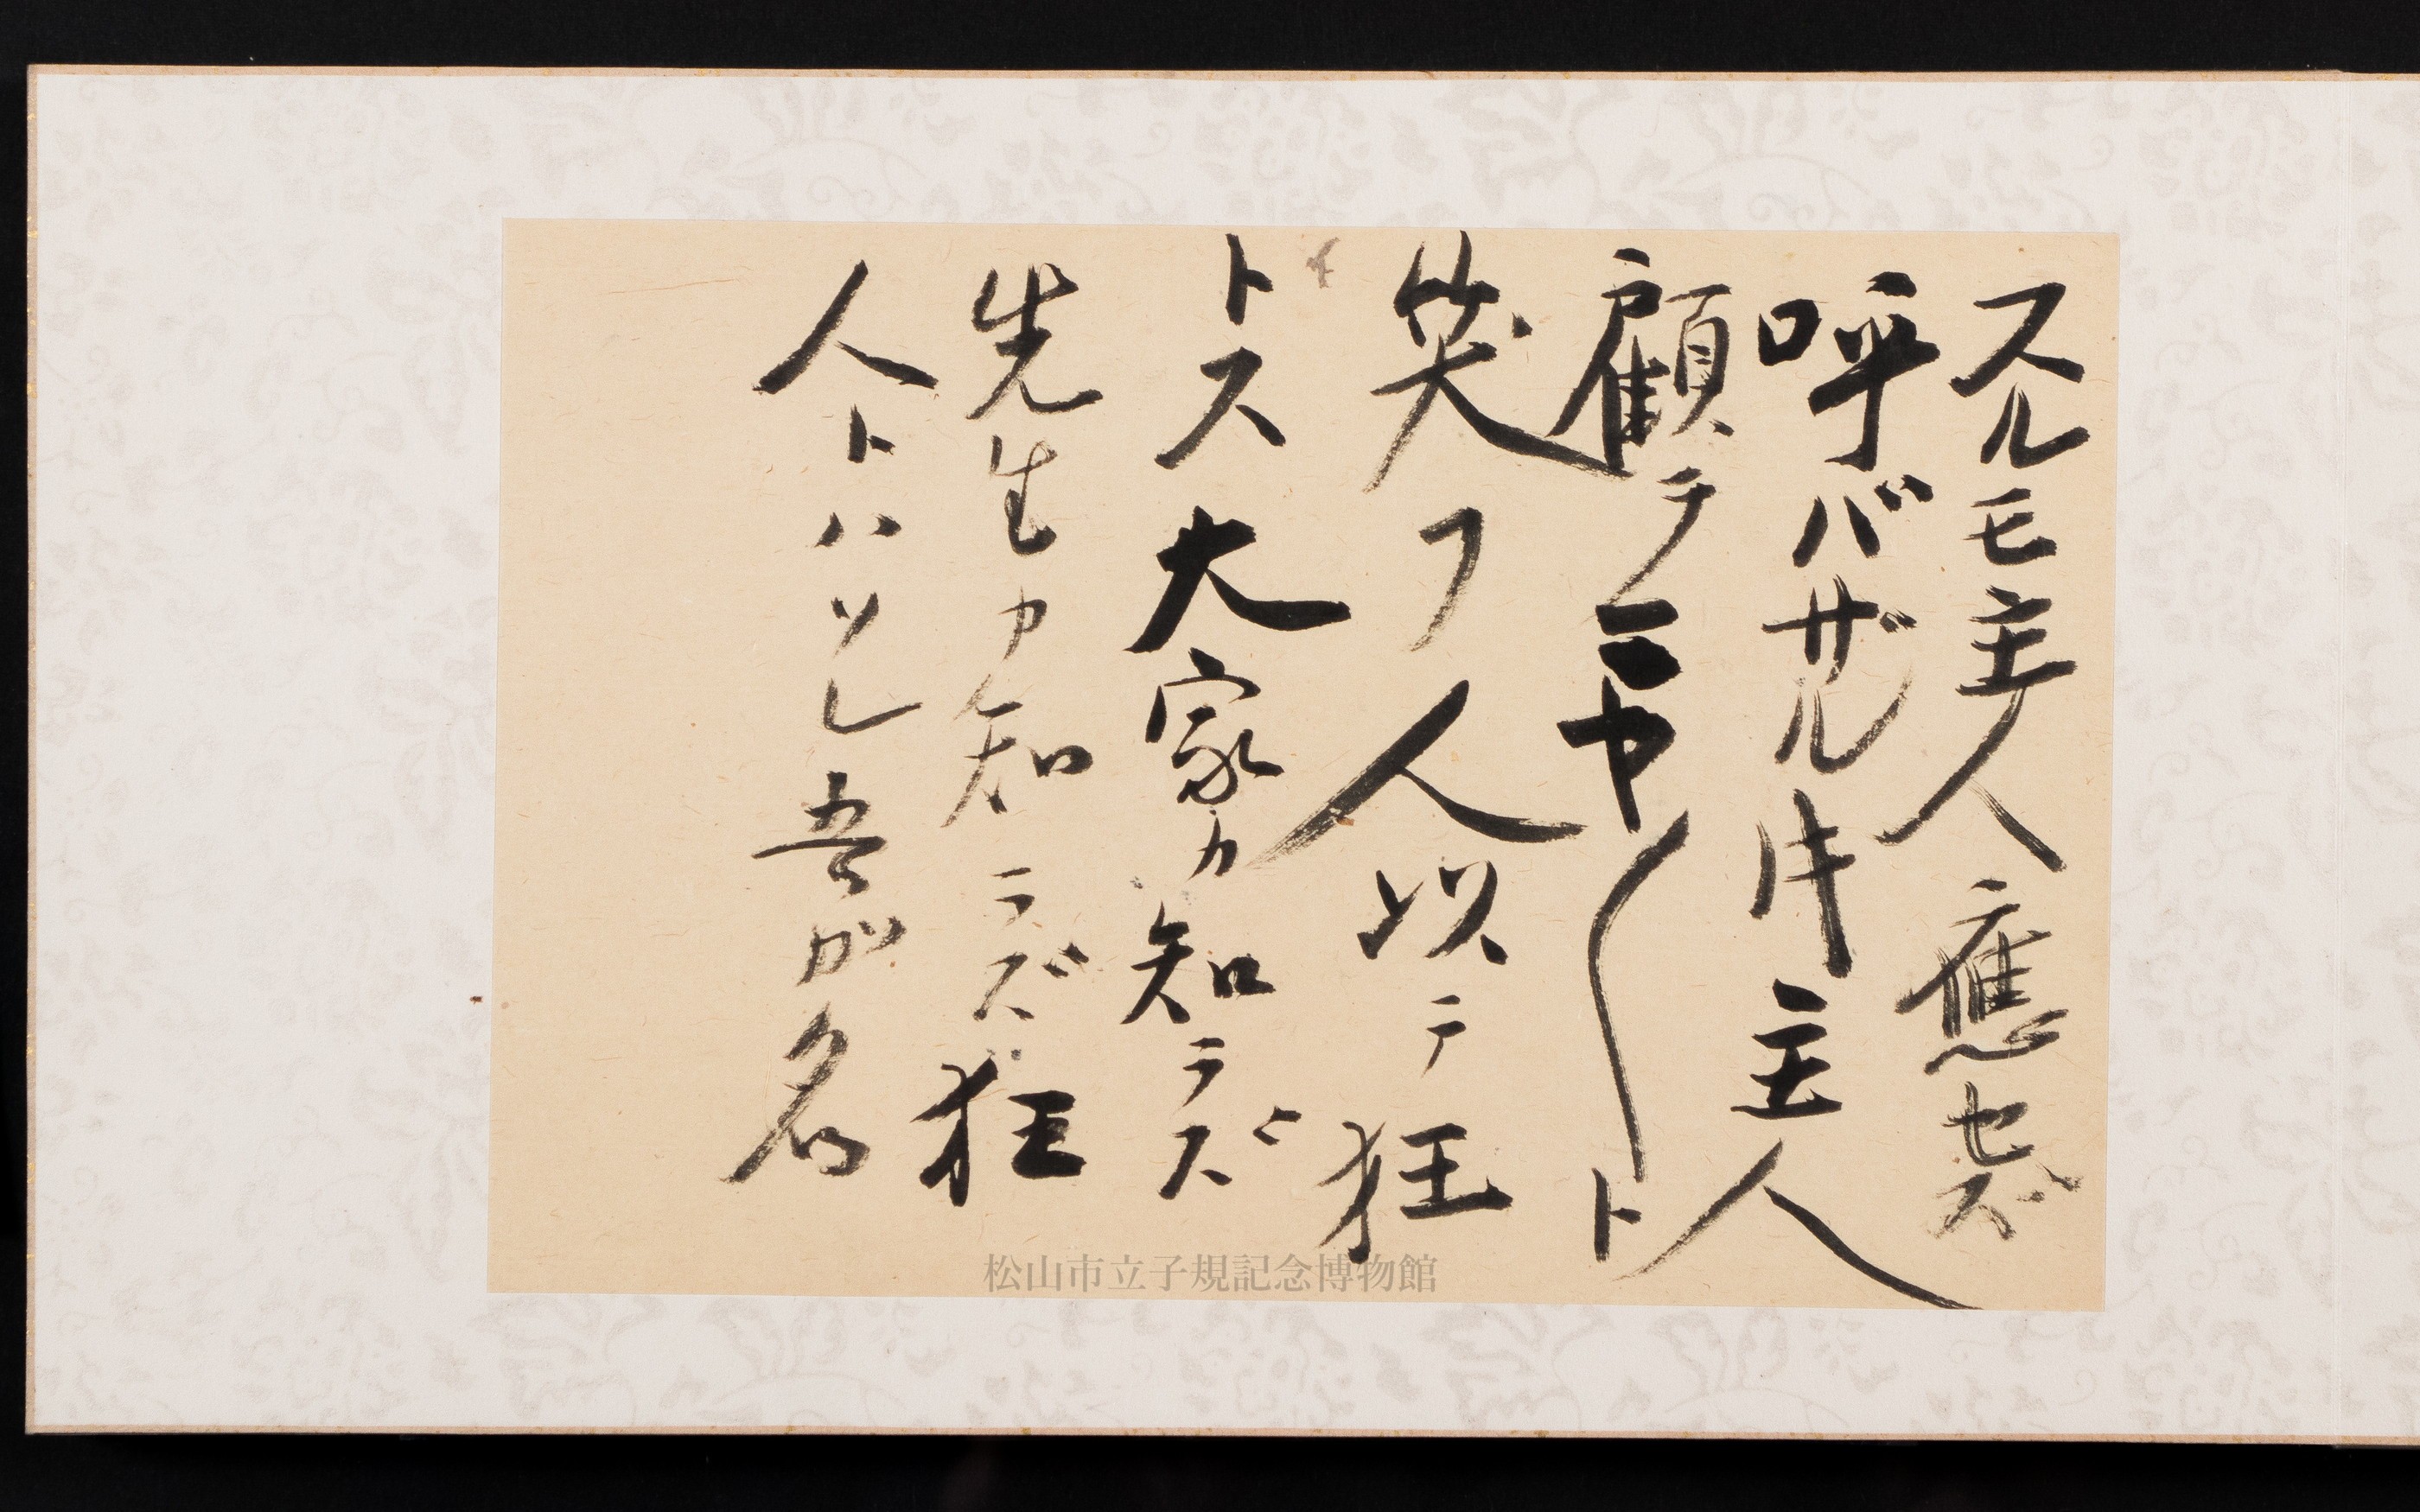 スルモ主人應セズ
呼バザルトキ主人
顧テニヤ〳〵ト
笑フ人以テ狂
トス大家カ知ラズ
先生カ知ラズ狂
人トハソレ吾ガ名
松山市立子規記念博物館